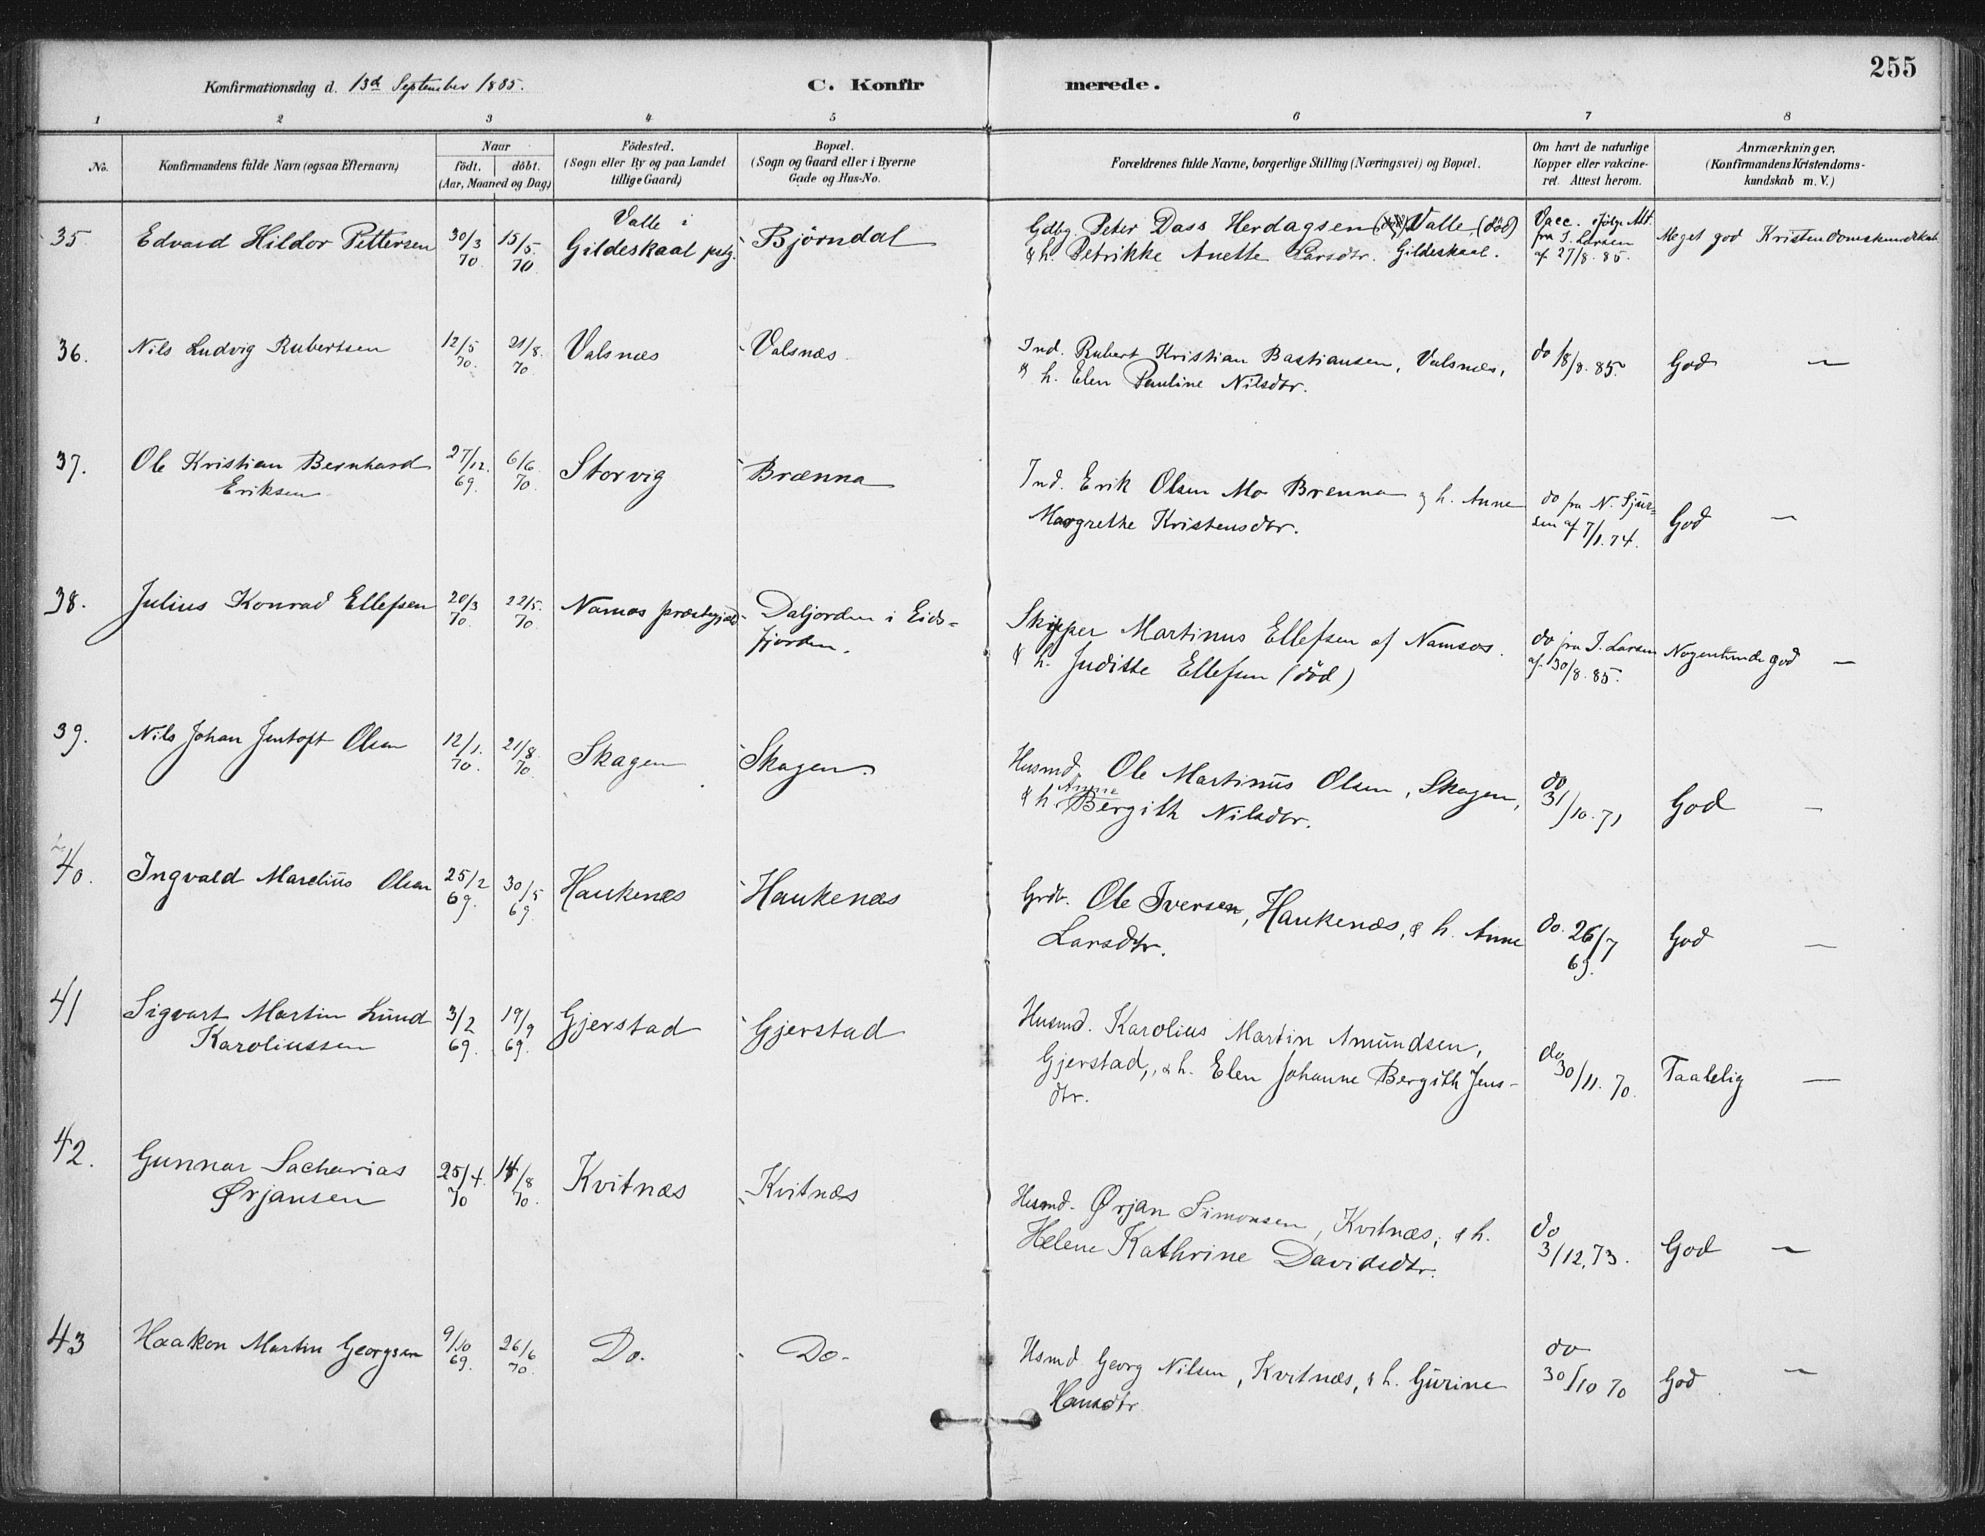 255
Konfirmationsdag d. 13de September 1885.
C. Konfirmerede.
1 2 3 4 5 6 7 8
No.
Konfirmandens fulde Navn (ogsaa Efternavn)
Naar
födt. döbt.
(Aar, Maaned og Dag)
Födested.
(Sogn eller By og paa Landet
tillige Gaard)
Bopæl.
(Sogn og Gaard eller i Byerne
Gade og Hus-No.
Forældrenes fulde Navne, borgerlige Stilling (Næringsvei) og Bopæl.
Om havt de naturlige
Kopper eller vakcine-
ret. Attest herom.
Anmærkninger.
(Konfirmandens Kristendoms-
kundskab m. V.)
35. Edvard Hildor Pettersen 30/3 70. 15/5. 70 Valle i
Gildeskaal pstg. Björndal
Gdbg. Peter Dass Herdagsen Valle (död)
& h. Petrikke Anette Larsdtr. Gildeskaal.
Vacc. ifølge Att.
fra J. Larsen
af 27/8. 85.
Meget god Kristendomskundskab
36. Nils Ludvig Rubertsen 12/5 70. 21/8. 70. Valsnæs Valsnæs
Ind. Rubert Kristian Bastiansen, Valsnæs,
& h. Elen Pauline Nilsdtr.
do 18/8. 85.
God —
37. Ole Kristian Bernhard
Eriksen 27/12. 69. 6/6. 70. Storvig Brænna
Ind. Erik Olsen Mo Brenna & h. Anne
Margrethe Kristensdtr.
do fra N. Sjur-
sen af 7/1. 74.
God —
38. Julius Konrad Ellefsen 20/3 70. 22/5. 70. Namos præstegjæld Daljorden i Eids-
fjorden.
Skipper Martinus Ellefsen af Namsos.
& h. Juditte Ellefsen (död)
do fra J. Larsen
af 30/8. 85.
Nogenlunde god —
39. Nils Johan Jentoft Olsen 12/1. 70. 21/8. 70. Skagen Skagen.
Husmd. Ole Martinus Olsen, Skagen,
& h. Anne Bergith Nilsdtr.
do
31/10. 71
God —
40. Ingvald Marelius Olsen 25/2 69. 30/5 69. Haukenæs Haukenæs
Grdb. Ole Iversen, Haukenæs, & h. Anne
Larsdtr.
do. 26/7
69.
God —
41 Sigvart Martin Lund
Karoliussen 3/2 69. 19/9 69. Gjerstad Gjerstad
Husmd. Karolius Martin Amundsen,
Gjerstad, & h. Elen Johanne Bergith Jens-
dtr.
do
30/11. 70.
Taalelig —
42. Gunnar Sacharias
Ørjansen 25/4. 70 14/8 70. Kvitnæs Kvitnæs
Husmd. Ørjan Simonsen, Kvitnæs, & h.
Helene Kathrine Davidsdtr.
do
3/12. 73.
God —
43 Haakon Martin Georgsen 9/10 69. 26/6 70. Do. Do-
Hsmd Georg Nilsen, Kvitnæs, & h. Gurine
Hansdtr
do
30/10 70
God —